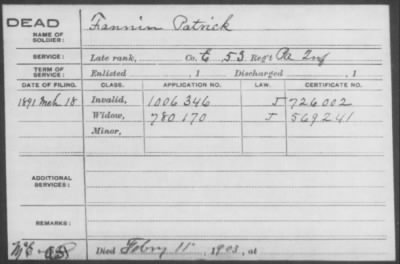 DEAD
NAME OF SOLDIER: Fannin Patrick
SERVICE: Late rank, Co. E 53 Reg't Pa Inf
TERM OF SERVICE: Enlisted , 1 Discharged , 1
DATE OF FILING. CLASS. APPLICATION NO. LAW. CERTIFICATE NO.
1891 Mch 18 Invalid, 1006346 J 726002
Widow, 780170 J 569241
Minor,
ADDITIONAL SERVICES:
REMARKS:
Died Febry 11", 1903, at